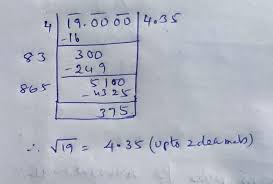 4 | 19.0000 | 4.35
-16
83 | 300
-249
865 | 5100
-4325
375
∴ √19 = 4.35 (upto 2 decimals)